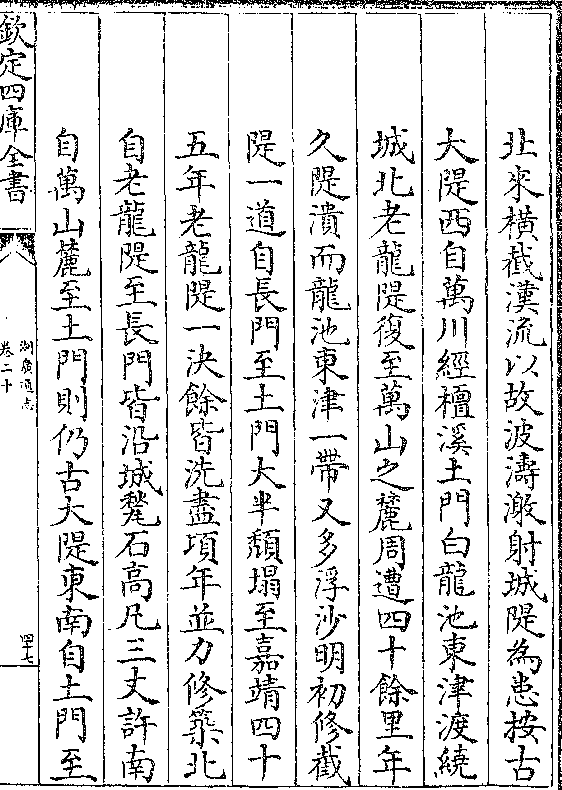 北來横截漢流以故波濤激射城隄為患按古
大隄西自萬川經檀溪土門白龍池東津渡繞
城北老龍隄復至萬山之麓周遭四十餘里年
久隄潰而龍池東津一帶又多浮沙明初修截
隄一道自長門至土門大半頽塌至嘉靖四十
五年老龍隄一決餘皆洗盡項年並力修築北
自老龍隄至長門皆沿城甃石高凡三丈許南
自萬山麓至土門則仍古大隄東南自土門至
欽定四庫全書
湖廣通志
卷二十
四十七